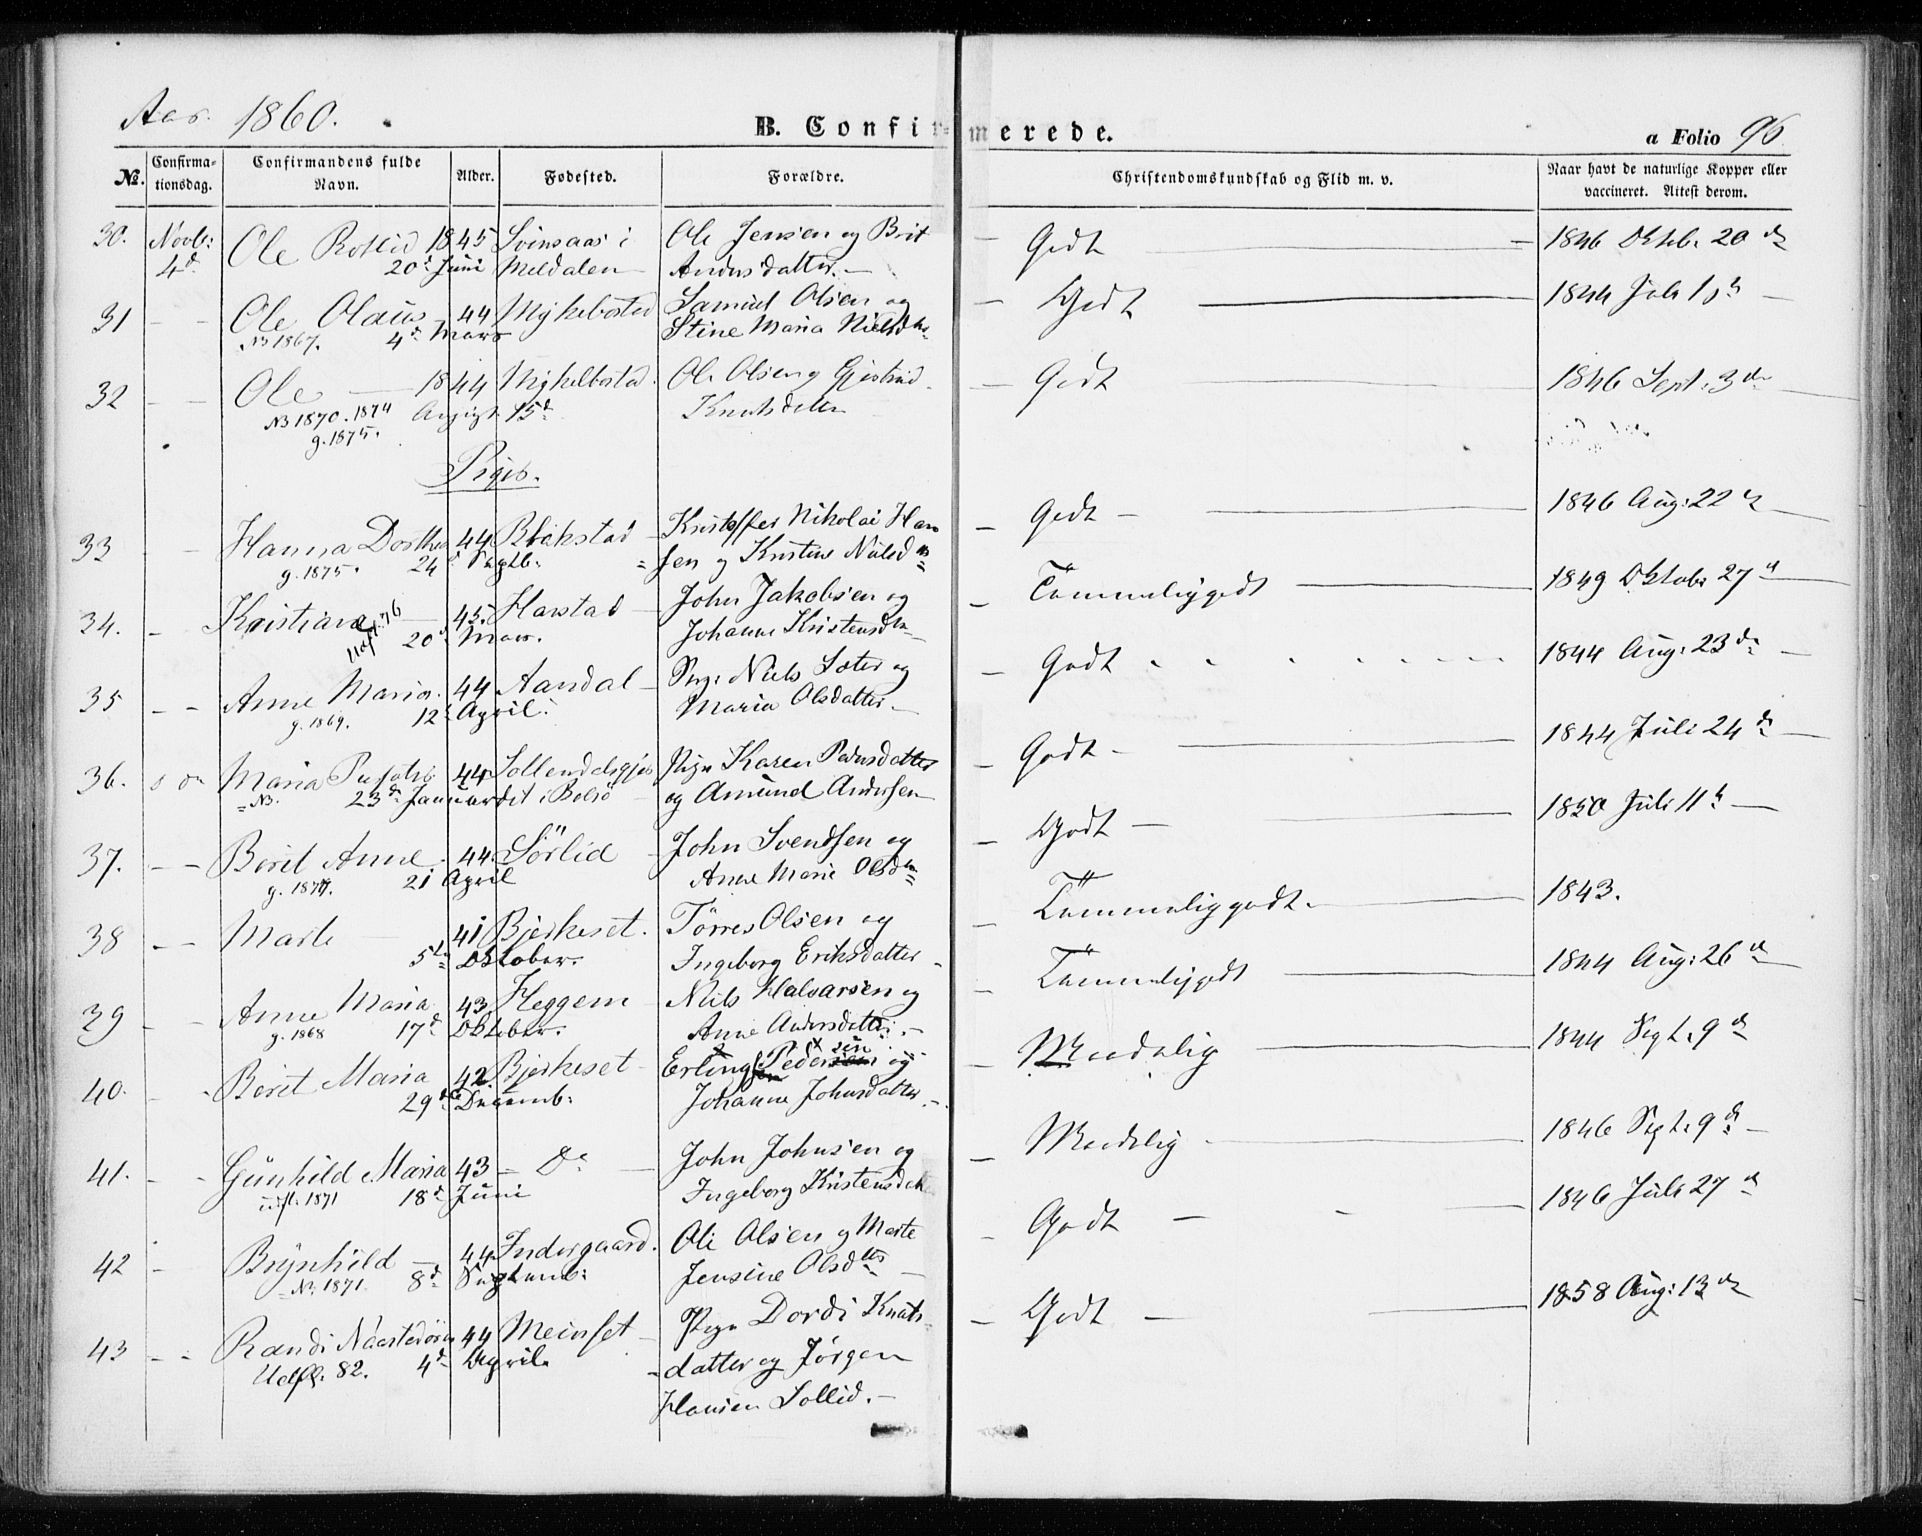 Aar 1860.
B. Confirmerede.
a Folio 96
No. Confirmationsdag. Confirmandens fulde Navn. Alder. Fødested. Forældre. Christendomskundskab og Flid m. v. Naar havt de naturlige Kopper eller vaccineret. Attest derom.
30. Novb: Ole 1845 i Ole Jensen og Brit Godt 1846 Oktb. 20 d
4d 20d Juni Meldalen Andersdatter.
31 Ole Olaus 44 Myklebostad Samuel Olsen og Godt 1844 Juli
NB 1867. 4d Mars Stine Maria Nielsdtr
32 Ole 1844 Myklebostad. Ole Olsen og Gjertrud Godt 1846 Sept. 3d
NB 1870. 1874 August 15d Knutsdatter
g. 1875.
Piger.
33 Hanna Dorthea 44 Blakstad Kristoffer Nikolai Han Godt 1846 Aug: 22
g. 1875. 24 Septb: = sen og Kristine Nilsd
34. Kristiane 45. Harstad John Jakobsen og Tömmeliggodt 1849 Oktob: 27d
Udfl. 76 20d Mar. Johanne Kristensd
35 Anne Maria. 44 Aandal Niels Sæter og Godt 1844 Aug: 23d
g. 1869. 12 April. Maria Olsdatter
36. Maria 44 Pige Karen Pedersdatter Godt 1844 Juli 24d
NB. 23d Januar i Bolsö og Amund Andersen
37. Berit Anne 44. Sörlid John Svendsen og Godt 1850 Juli 11
g. 1877. 21 April Anne Marie Olsd
38 Marte 41 Bjerkeset. Törres Olsen og Tömmeliggodt. 1843.
5te Oktober. Ingeborg Eriksdatter
39 Anne Maria 43 Heggem Niels Halvorsen og Tömmeliggodt 1844 Aug: 26d
g. 1868 17d Oktober. Anne Andersdatter.
40. Berit Maria 42 Bjerkeset Erling Pedersen og Maadelig 1844 Sept. 9d
29d Decemb: Johanne Johnsdatter
41. Gunhild Maria 43 Do John Johnsen og Maadelig 1846 Sept. 9d
udfl. 1871 18d Juni Ingeborg Kristensdatter
42 Brynhild 44. Indergaard. Ole Olsen og Marte Godt 1846 Juli 27d
NB. 1871. 8d Septemb: Jensine Olsdtr
43 Randi 44 Meinset Pige Dordi Knuts- Godt 1858 Aug: 13d
Udfl. 82. 4d April datter og Jörgen
Hansen Sollid.